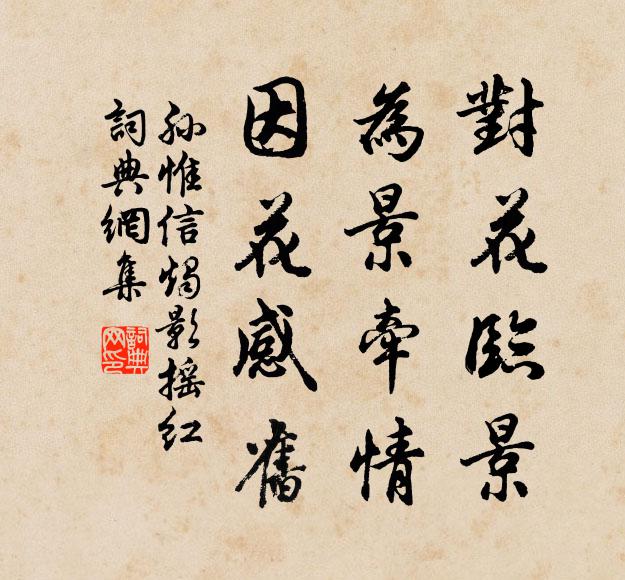 對花臨景
為景牽情
因花感舊
孙惟信燭影摇红
詞典網集
詞典网印